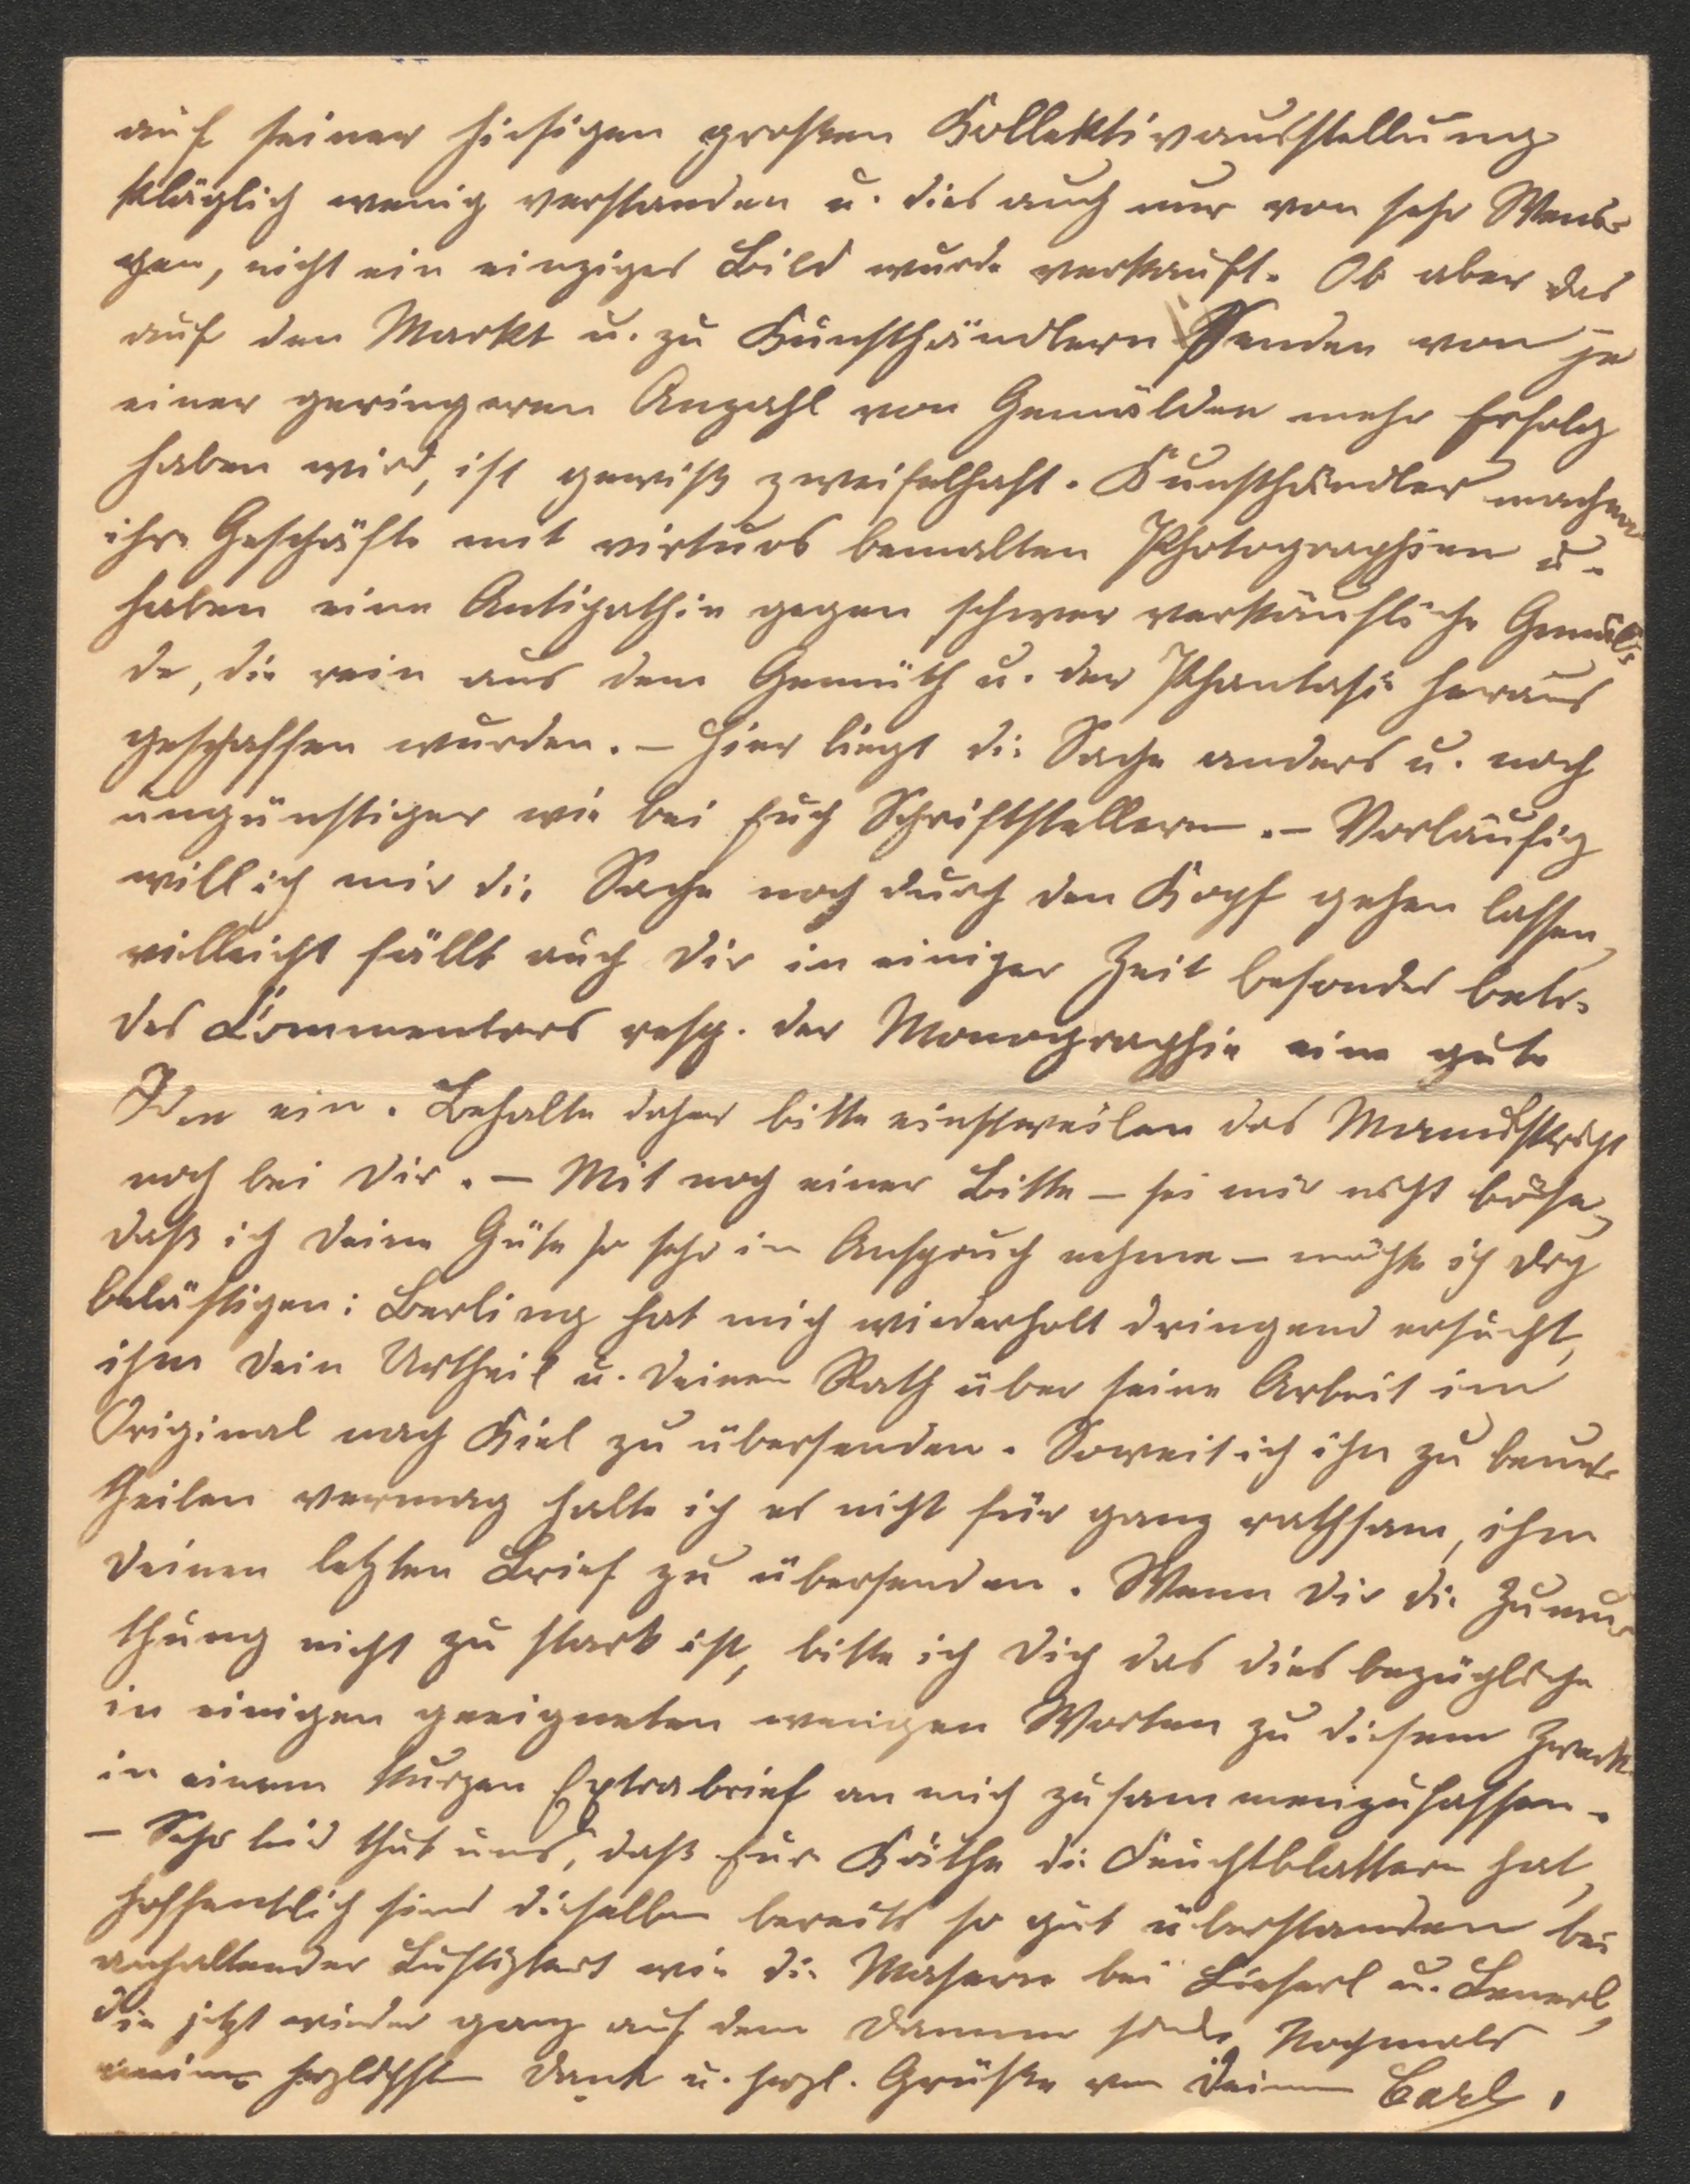 auf seiner hiesigen großen Kollektivausstellung
kläglich wenig verstanden u. dies auch nur von sehr Weni-
gen, nicht ein einziges Bild wurde verkauft. Ob aber das
auf den Markt u. zu Kunsthändlern Senden von je
einer geringeren Anzahl von Gemälden mehr Erfolg
haben wird, ist gewiß zweifelhaft. Kunsthändler machen
ihre Geschäfte mit virtuos bemalten Photographien u.
haben eine Antipathie gegen schwer verkäufliche Gemäl-
de, die rein aus dem Gemüth u. der Phantasie heraus
geschaffen wurden. – Hier liegt die Sache anders u. noch
ungünstiger wie bei Euch Schriftstellern. – Vorläufig
will ich mir die Sache noch durch den Kopf gehen lassen,
vielleicht fällt auch Dir in einiger Zeit besonders betr.
des Commentars resp. der Monographie eine gute
Idee ein. Behalte daher bitte einstweilen das Manuskript
noch bei Dir. – Mit noch einer Bitte – sei mir nicht böse,
daß ich Deine Güte so sehr in Anspruch nehme – möchte ich Dich
belästigen: Berling hat mich wiederholt dringend ersucht,
ihm Dein Urtheil u. Deinen Rath über seine Arbeit im
Original nach Kiel zu übersenden. Soweit ich ihn zu beur-
theilen vermag halte ich es nicht für ganz rathsam, ihm
Deinen letzten Brief zu übersenden. Wenn Dir die Zumu-
thung nicht zu stark ist, bitte ich Dich das dies bezügliche
in einigen geeigneten wenigen Worten zu diesem Zweck
in einem kurzen Extrabrief an mich zusammenzufassen.
– Sehr leid thut uns, daß Eure Käthe die Feuchtblattern hat,
hoffentlich sind dieselben bereits so gut überstanden bei
anhaltender Lustigkeit wie die Masern bei Lieserl u. Lenerl,
die jetzt wieder ganz auf dem Damm sind. Nochmals
meinen herzlichsten Dank u. herzl. Grüße von Deinem Carl.